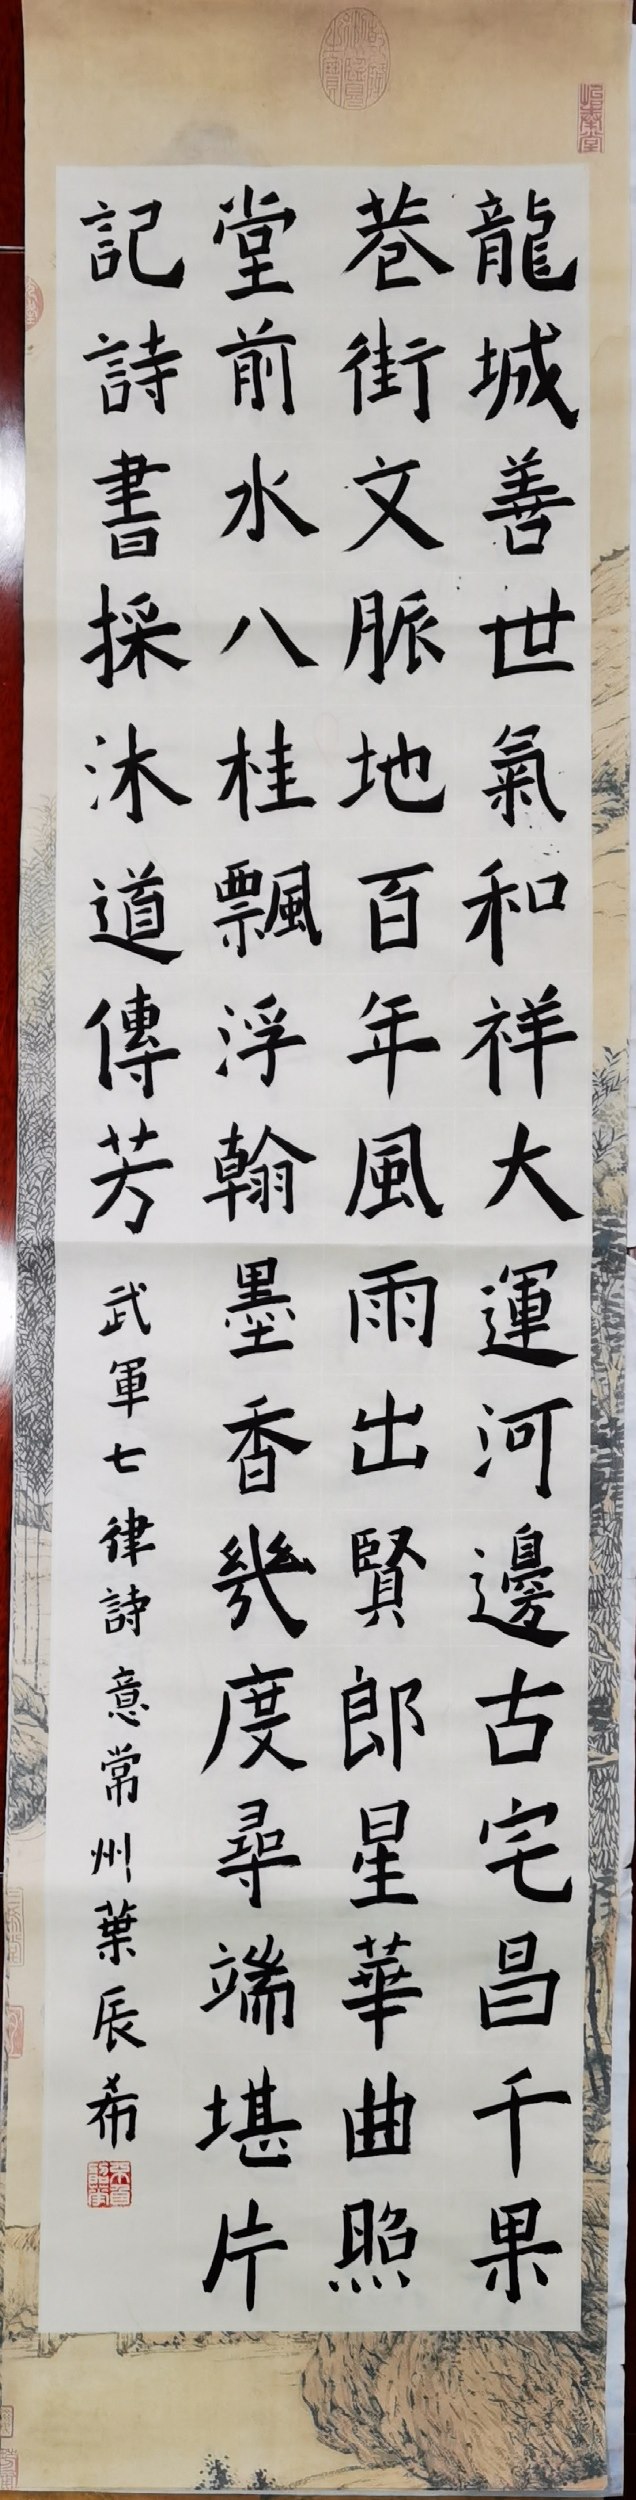 龍城善世氣和祥大運河邊古宅昌千果
巷街文脈地百年風雨出賢郎星華曲照
堂前水八桂飄浮翰墨香幾度尋端堪片
記詩書採沐道傳芳
武軍七律詩意常州葉辰希